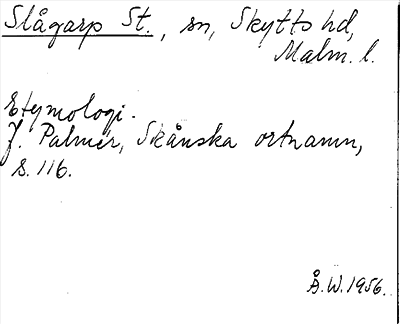 Slågarp St., sn, Skytts hd,
Malm. l.
Etymologi.
J. Palmér, Skånska ortnamn,
s. 116.
Å.W. 1956.